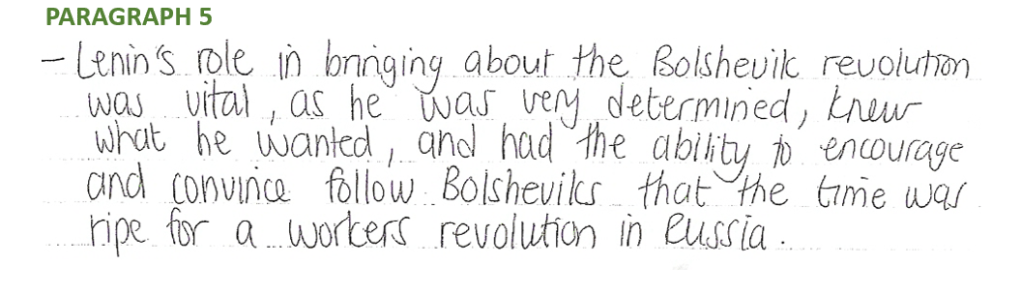 PARAGRAPH 5
- Lenin's role in bringing about the Bolshevik revolution
was vital, as he was very determined, knew
what he wanted, and had the ability to encourage
and convince follow Bolsheviks that the time was
ripe for a workers revolution in Russia.